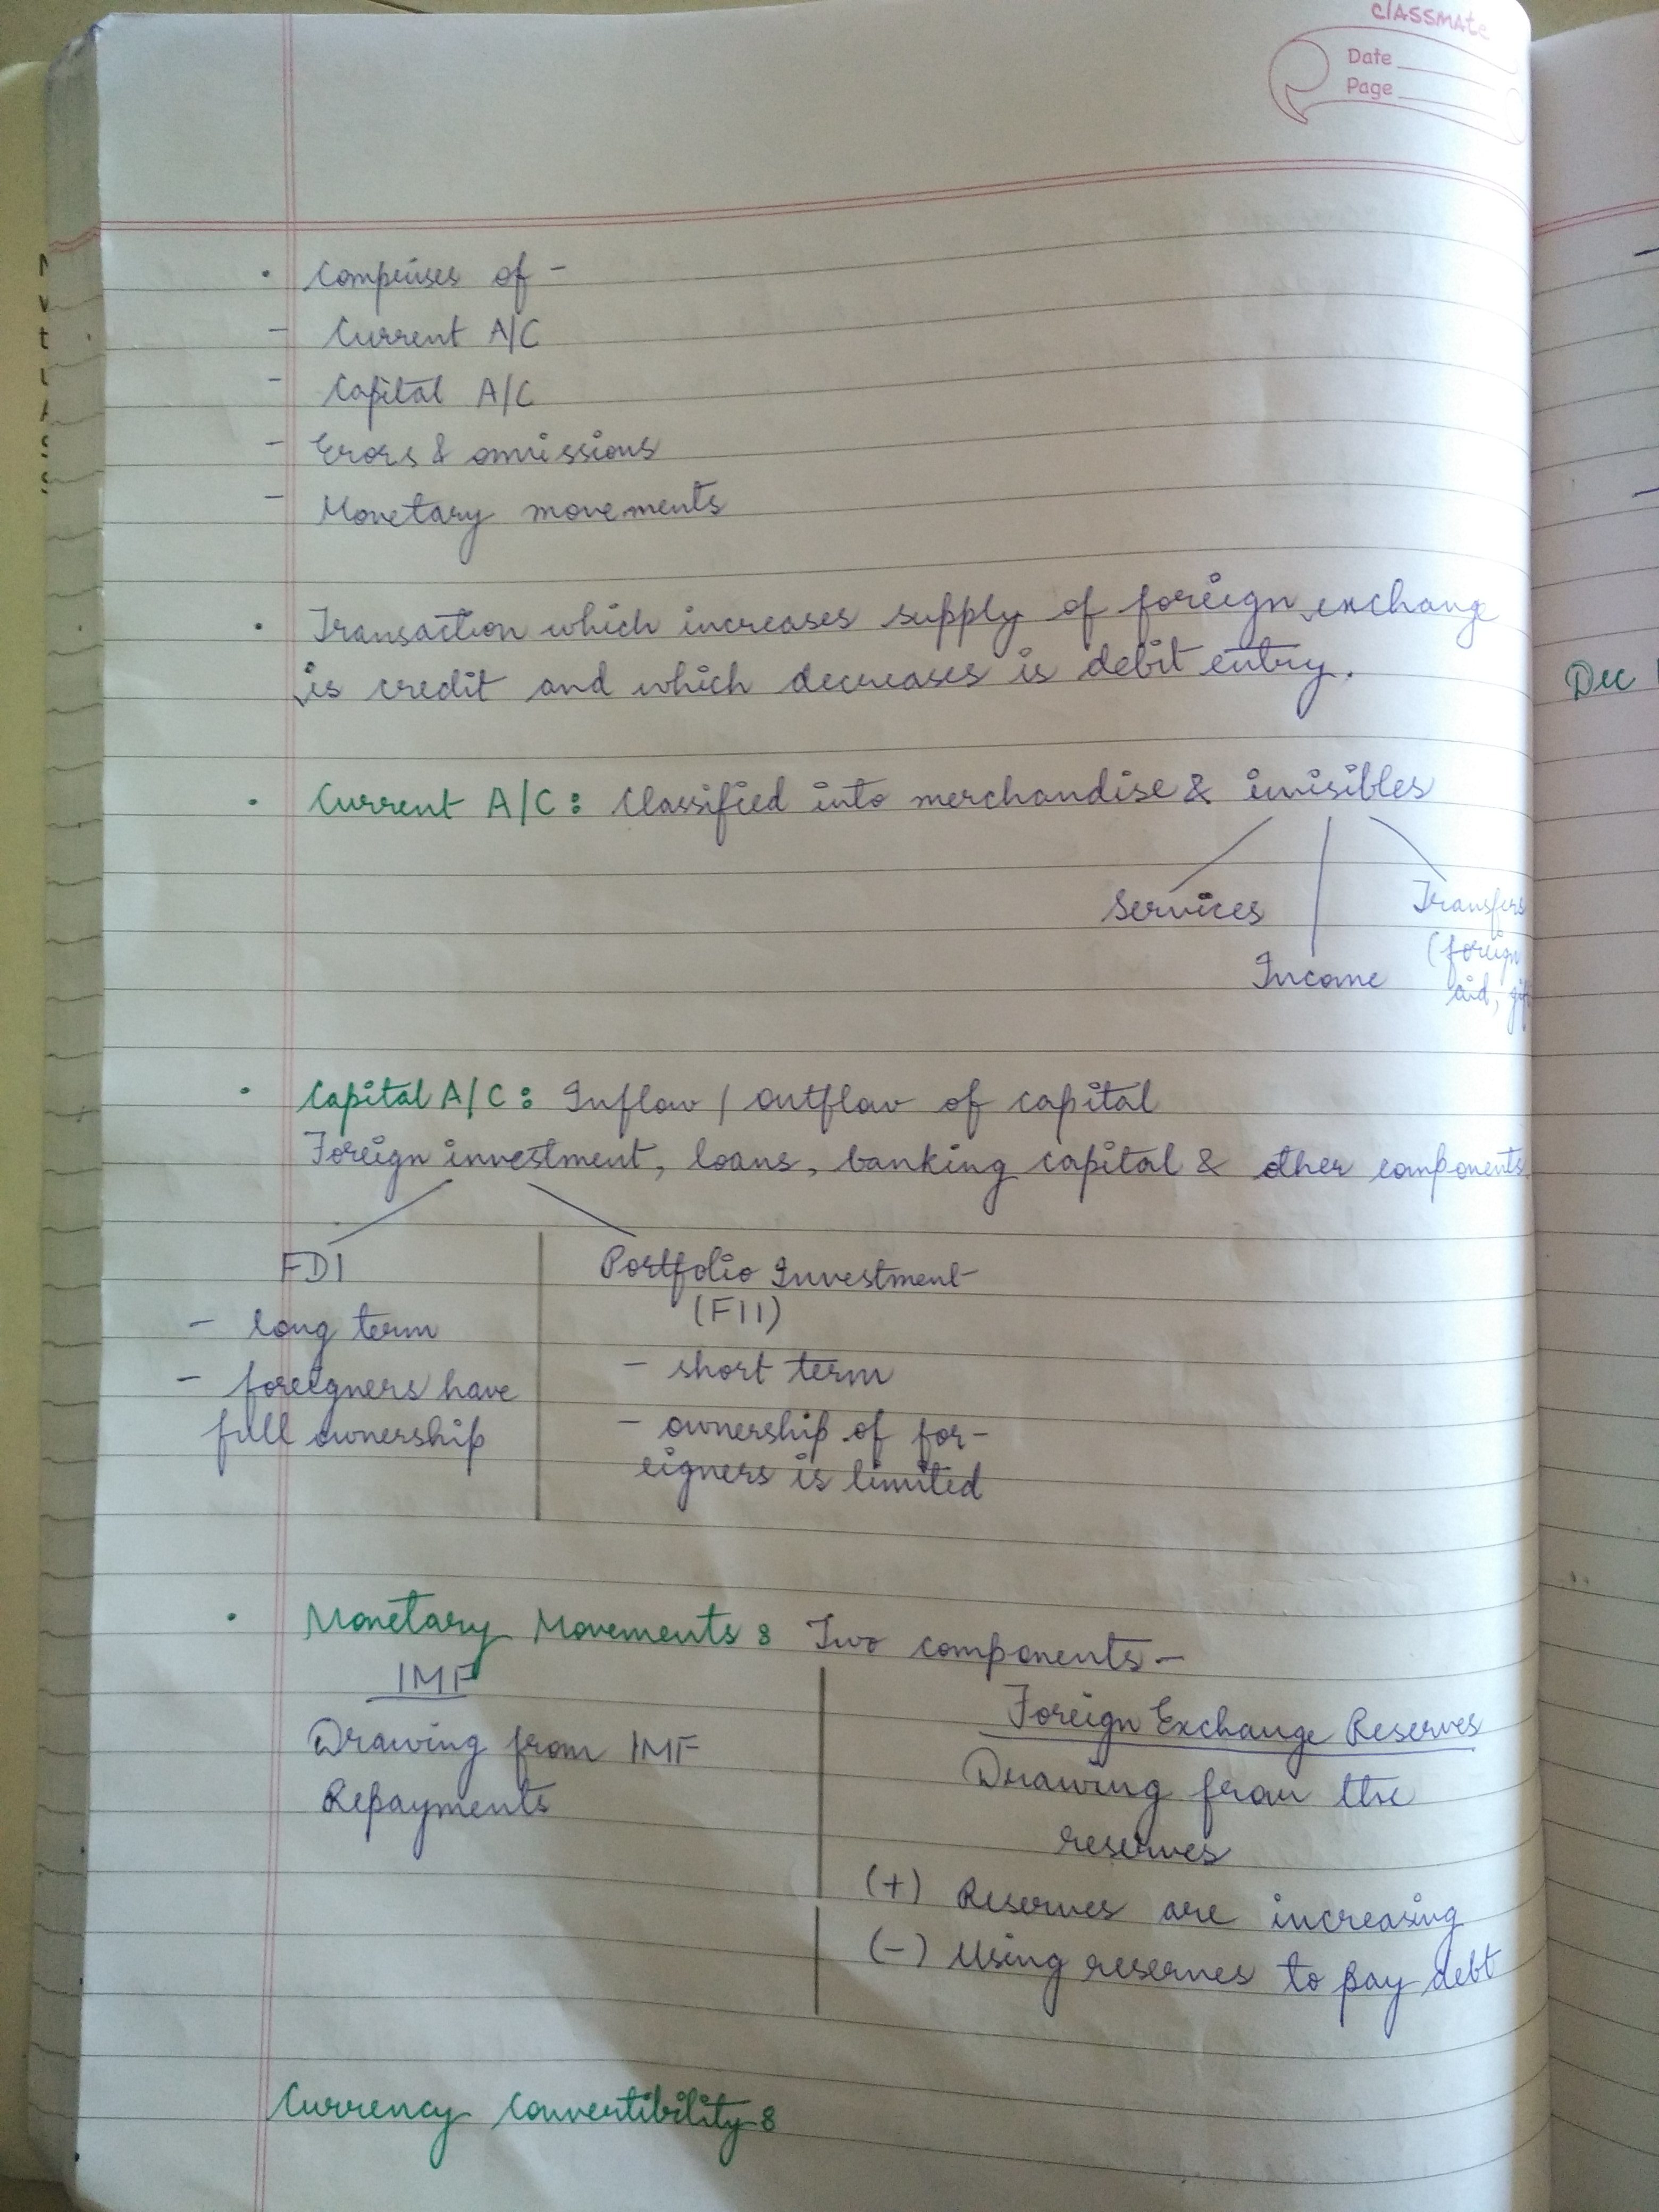 classmate
Date
Page
• Comprises of -
- Current A/C
- Capital A/C
- Erors & omissions
- Monetary movements
• Transaction which increases supply of foreign exchange
is credit and which decreases is debit entry.
Dec
• Current A/C: Classified into merchandise & invisibles
Services
Income
Transfers
(foreign
aid,
• Capital A/C: Inflow / outflow of capital
Foreign investment, loans, banking capital & other components
FDI
- long term
- foreigners have
full ownership
Portfolio Investment
(FII)
- short term
- ownership of for-
eigners is limited
• Monetary Movements: Two components -
IMF
Drawing from IMF
Repayments
Foreign Exchange Reserves
Drawing from the
reserves
(+) Reserves are increasing
(-) Using reserves to pay debt
Currency Convertibility: